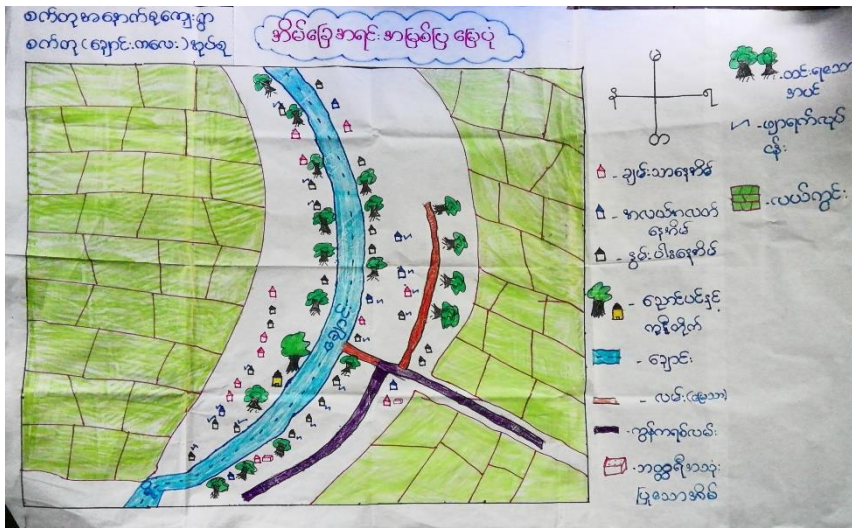 စက်တုအနောက်စုကျေးရွာ
စက်တု(ချောင်းကလေး)အုပ်စု
အိမ်ခြေအရင်းအမြစ်ပြ မြေပုံ
မ
န
ရ
တ
- ချမ်းသာနေအိမ်
- အလယ်အလတ်
နေအိမ်
- နွမ်းပါးနေအိမ်
- ညောင်ပင်နှင့်
ကန္နီတိုက်
- ချောင်း
- လမ်း(မြေသား)
- ကွန်ကရစ်လမ်း
- ဘတ္ထရီအသုံး
ပြုသောအိမ်
- ထင်းရသော
အပင်
- ဖျာရက်လုပ်
ငန်း
- လယ်ကွင်း
ချောင်း